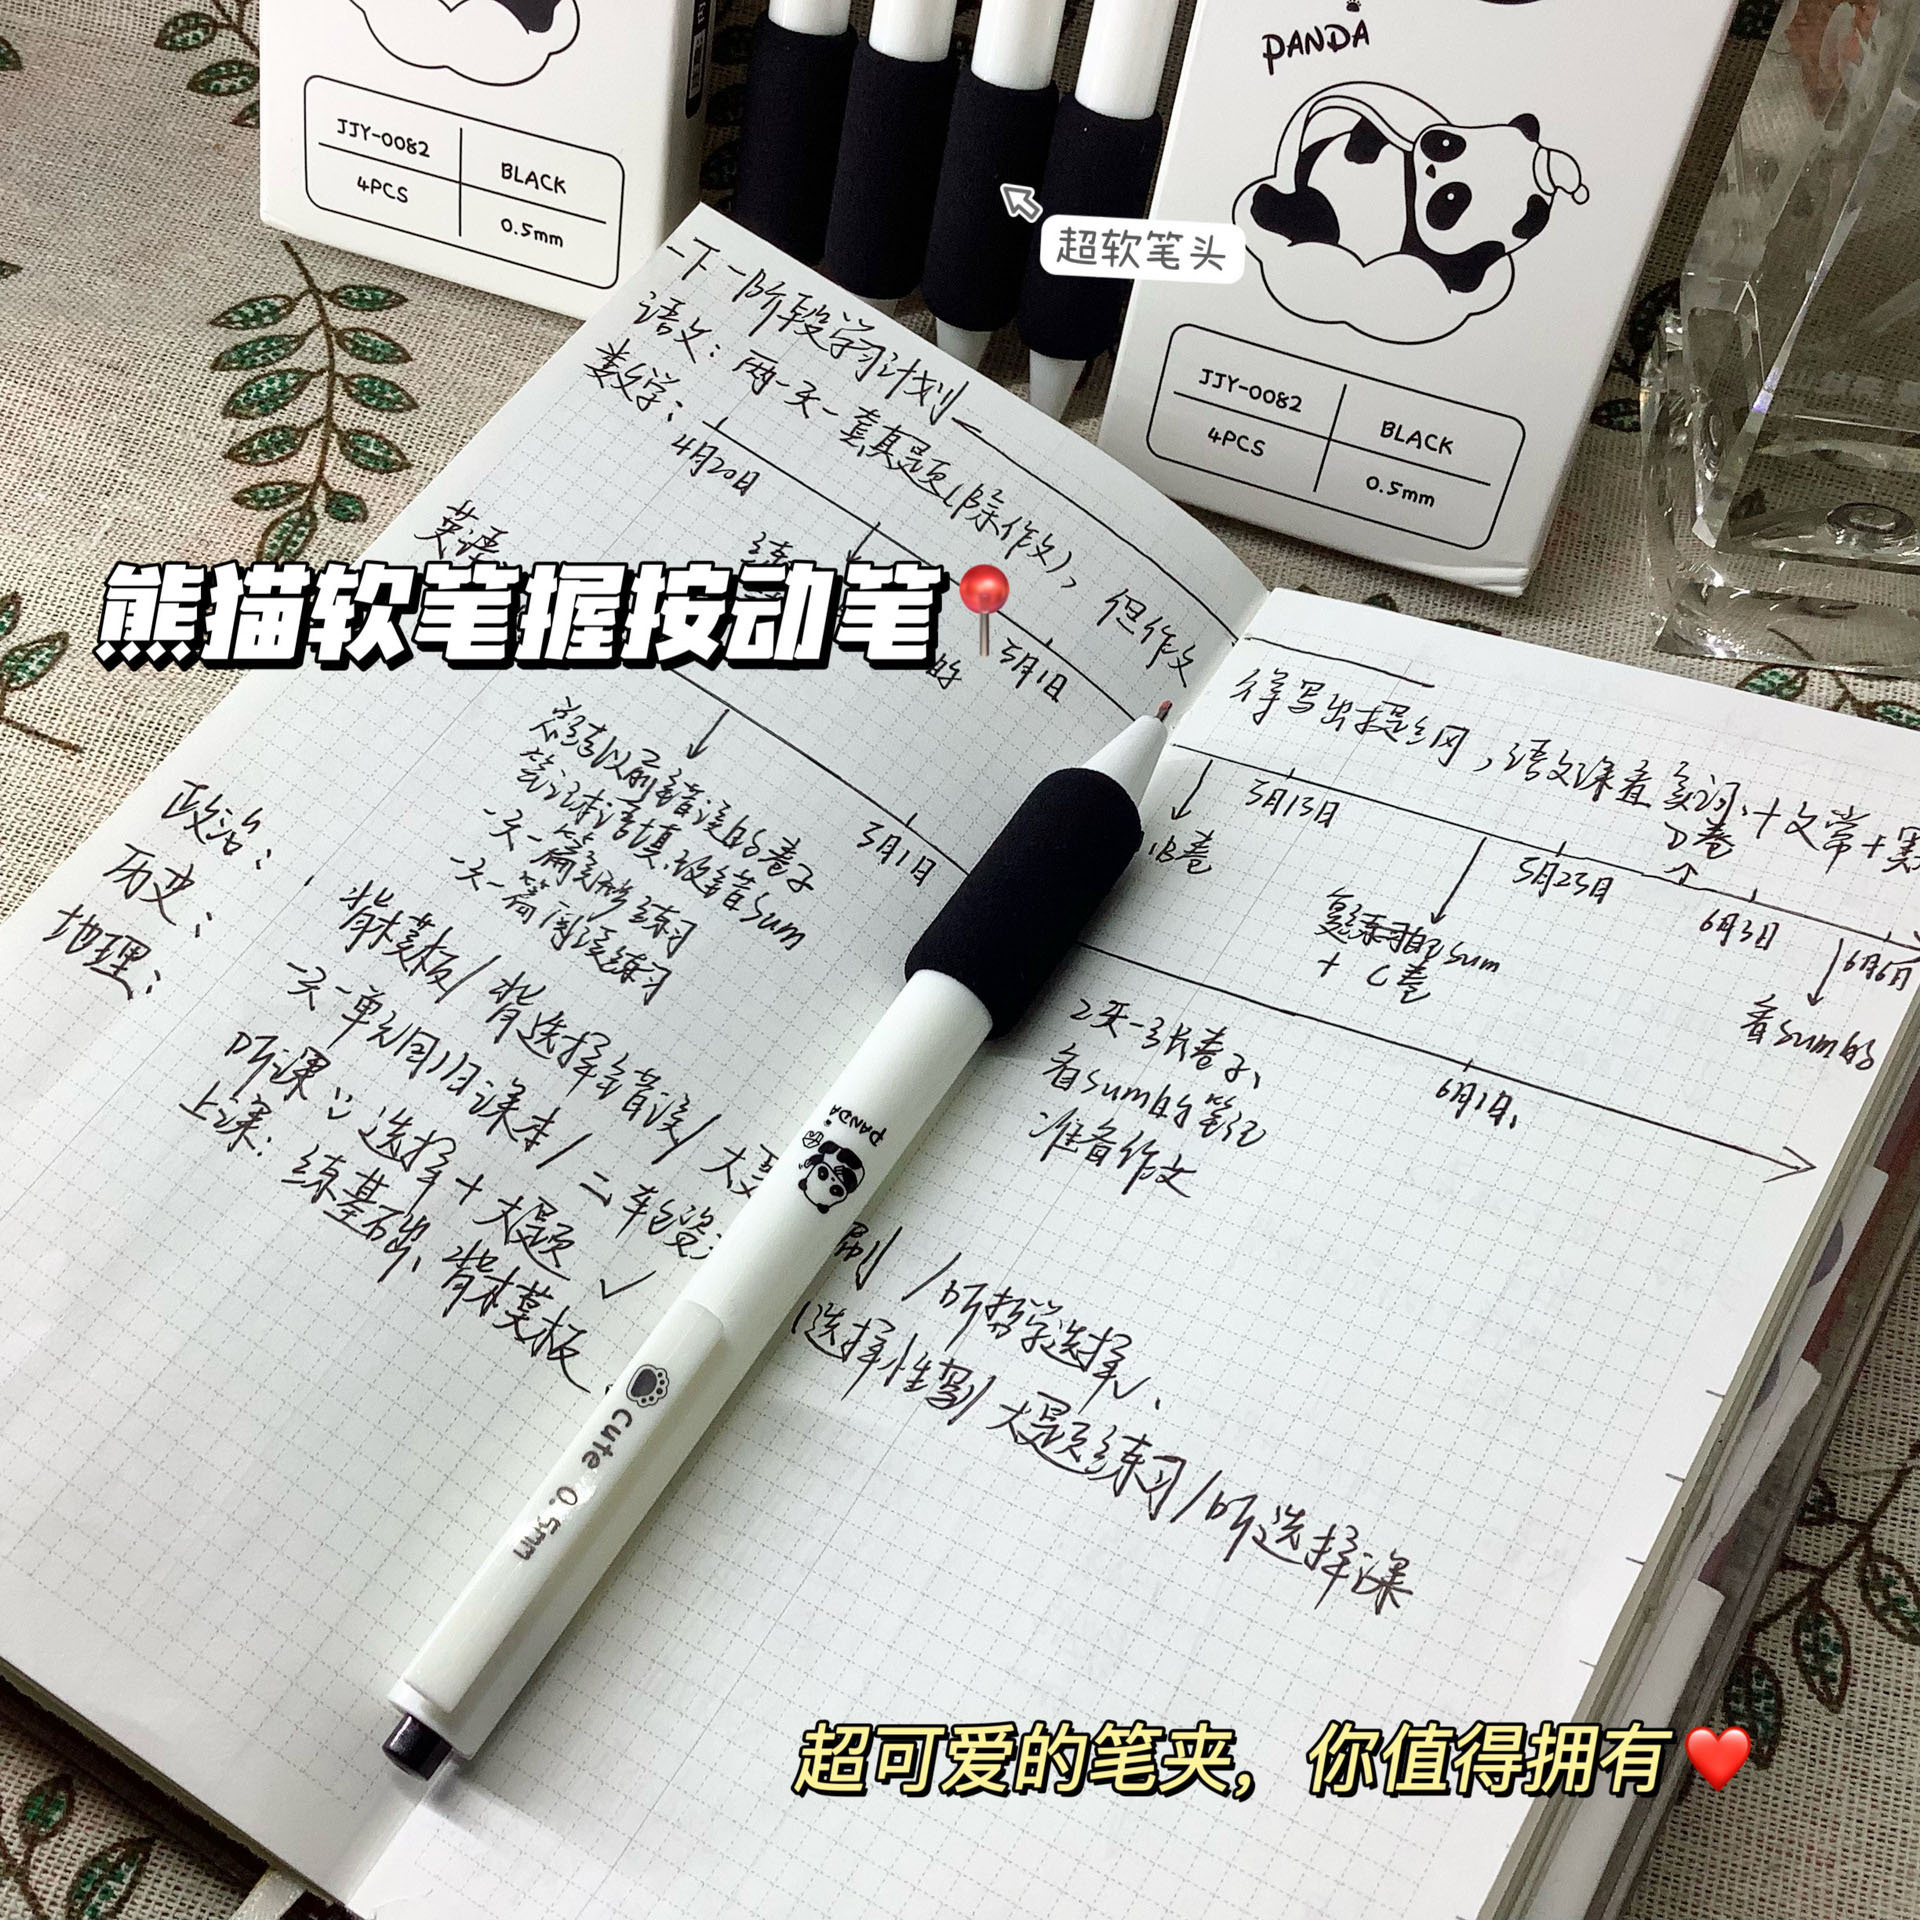 PANDA
JJY-0082
BLACK
4PCS
0.5mm
JJY-0082
BLACK
4PCS
0.5mm
超软笔头
一下一阶段学习计划一
语文：两天一套真题(除作文)，但作文
得写出提纲，语文课看实词、+文常+默
数学：
4月20日
5月1日
5月13日
5月23日
6月3日
6月6日
B卷
D卷
+ C卷
看sum的
英语
熊猫软笔握按动笔📍
的
总结以前错误的卷子
一天一篇完形练习
一天一篇阅读练习
5月1日
2天一张卷子、
看sum的笔记
准备作文
6月1日
政治：
背模板/背选择错误/大
刷/听哲学选择、
历史：
地理：
听课：选择+大题✓
(选择性写)大题练习/听选择课
上课：练基础、背模板
PANDA
cute 0.5mm
超可爱的笔夹，你值得拥有❤️